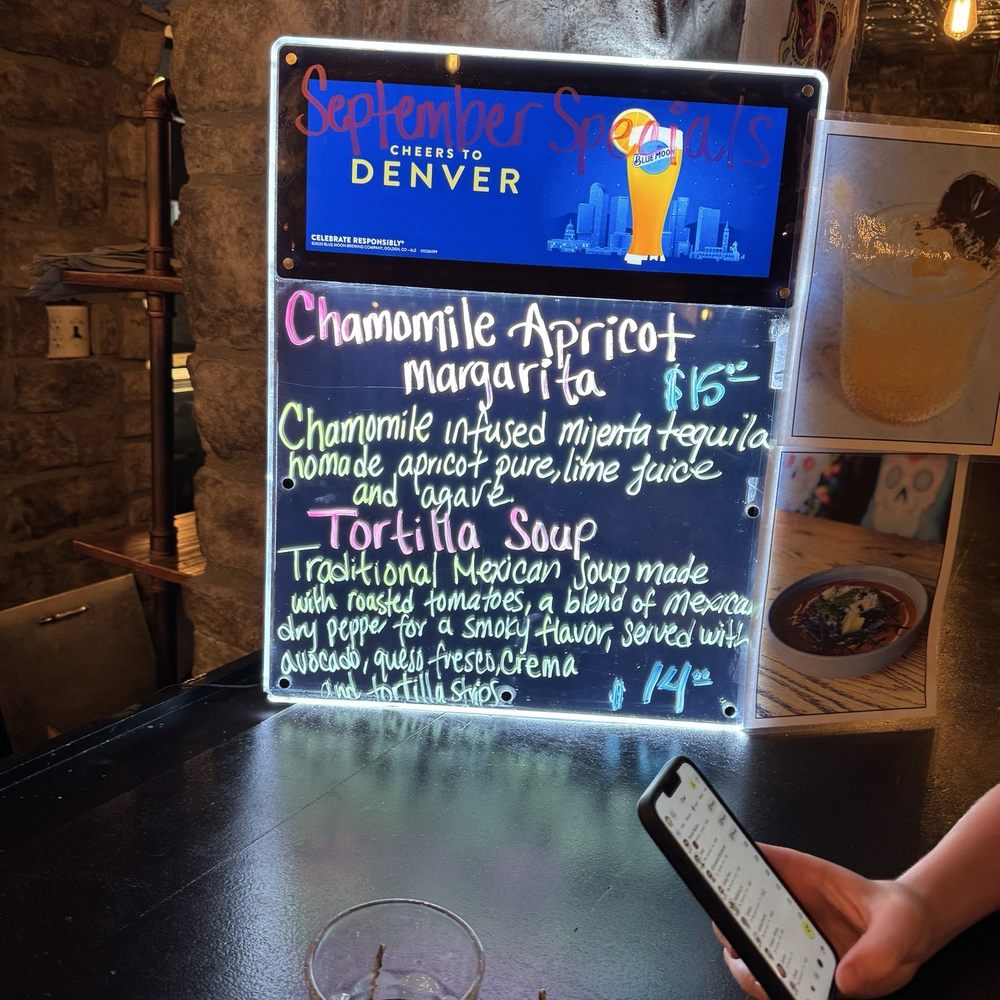 September Specials
CHEERS TO
DENVER
BLUE MOON
CELEBRATE RESPONSIBLY®
©2020 BLUE MOON BREWING COMPANY, GOLDEN, CO • ALE
Chamomile Apricot
margarita $15.00
Chamomile infused mijenta tequila
homade, apricot pure, lime juice
and agave.
Tortilla Soup
Traditional Mexican Soup made
with roasted tomatoes, a blend of mexican
dry pepper for a smoky flavor, served with
avocado, queso fresco, Crema
and tortilla strips
$ 14.00